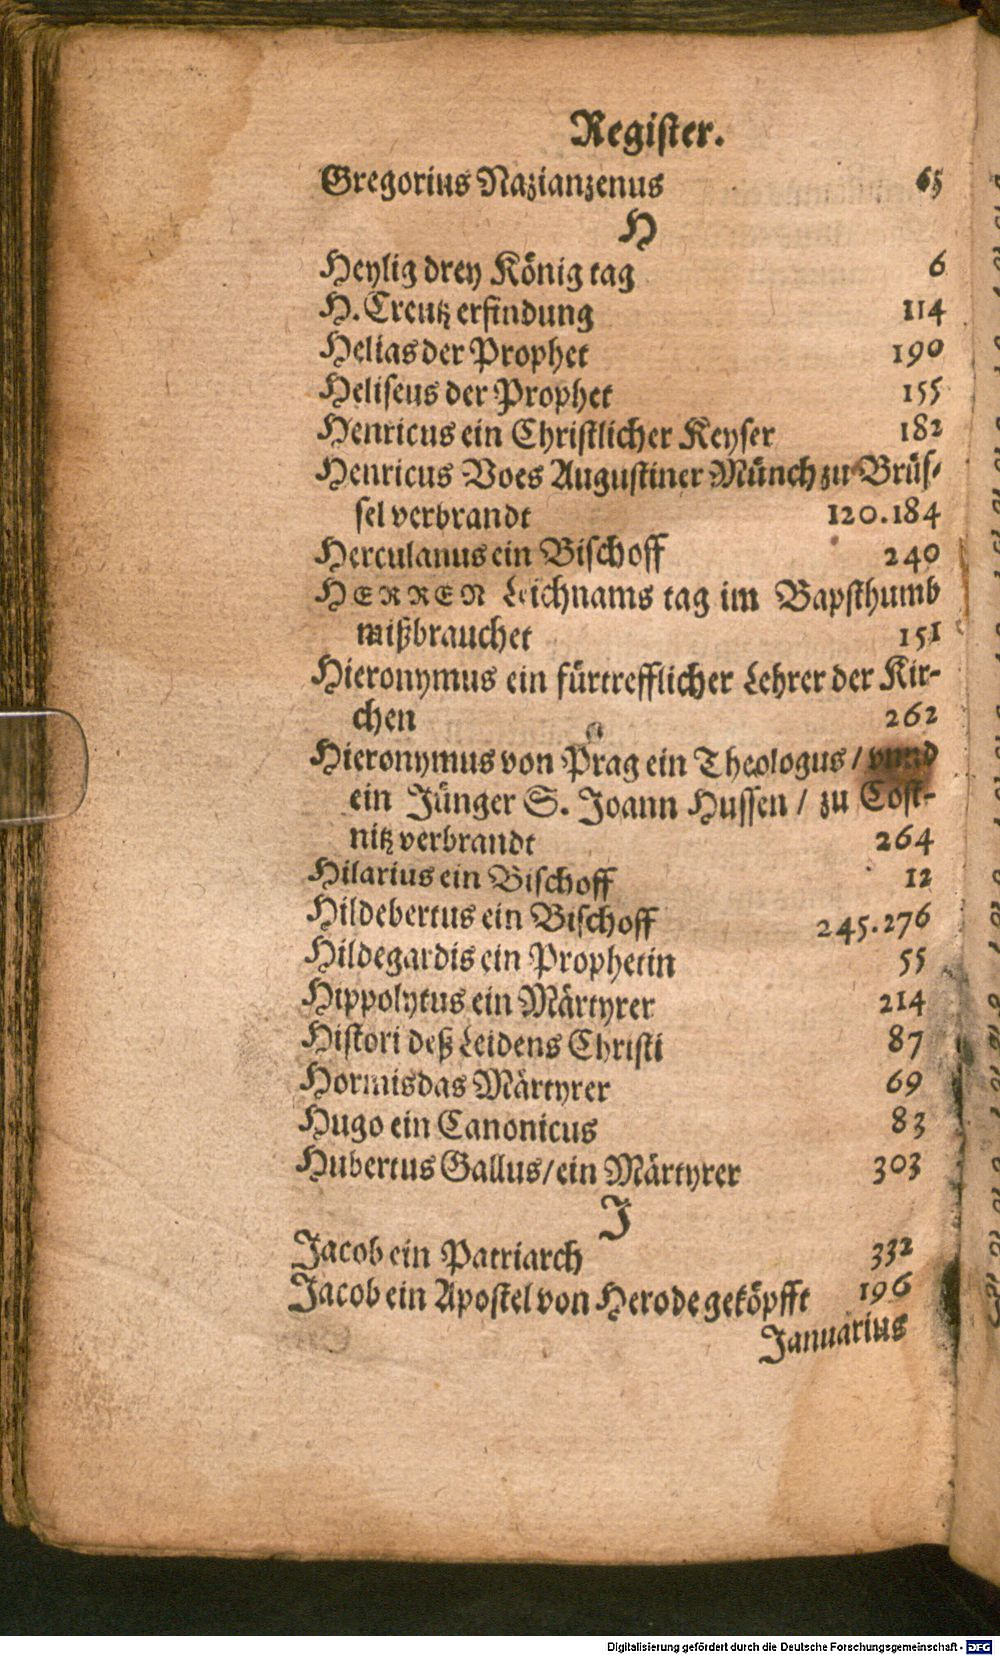 Register.
Gregorius Nazianzenus 65
H
Heylig drey König tag 6
H. Creutz erfindung 114
Helias der Prophet 190
Heliseus der Prophet 155
Henricus ein Christlicher Keyser 182
Henricus Voes Augustiner Münch zu Brüs-
sel verbrandt 120.184
Herculanus ein Bischoff 240
HERREN Leichnams tag im Bapsthumb
mißbrauchet 151
Hieronymus ein fürtrefflicher Lehrer der Kir-
chen 262
Hieronymus von Prag ein Theologus / vnnd
ein Jünger S. Joann Hussen / zu Cost-
nitz verbrandt 264
Hilarius ein Bischoff 12
Hildebertus ein Bischoff 245.276
Hildegardis ein Prophetin 55
Hippolytus ein Märtyrer 214
Histori deß Leidens Christi 87
Hormisdas Märtyrer 69
Hugo ein Canonicus 83
Hubertus Gallus/ein Märtyrer 303
J
Jacob ein Patriarch 332
Jacob ein Apostel von Herode geköpfft 196
Januarius
Digitalisierung gefördert durch die Deutsche Forschungsgemeinschaft - DFG